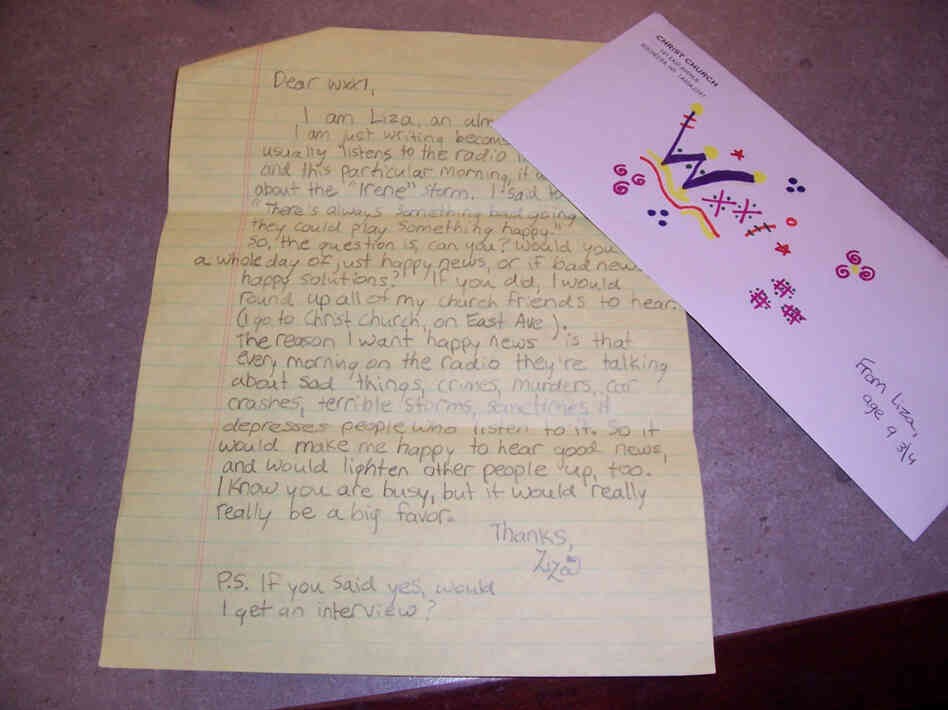 Dear WXXI,
I am Liza, an
I am just writing
usually listens to the radio
and this particular morning, it
about the "Irene" storm. I said
"There's always something bad going
they could play something happy."
So, the question is, can you? Would you
a whole day of just happy news, or if bad news
happy solutions? If you did, I would
round up all of my church friends to hear.
(I go to Christ church, on East Ave).
The reason I want happy news is that
every morning on the radio they're talking
about sad things, crimes, murders, car
crashes, terrible storms, sometimes it
depresses people who listen to it. So it
would make me happy to hear good news,
and would lighten other people up, too.
I know you are busy, but it would really
really be a big favor.
Thanks,
Liza
P.S. If you said yes, would
I get an interview?
CHRIST CHURCH
141 EAST AVENUE
ROCHESTER, NY
From Liza,
age 9 3/4